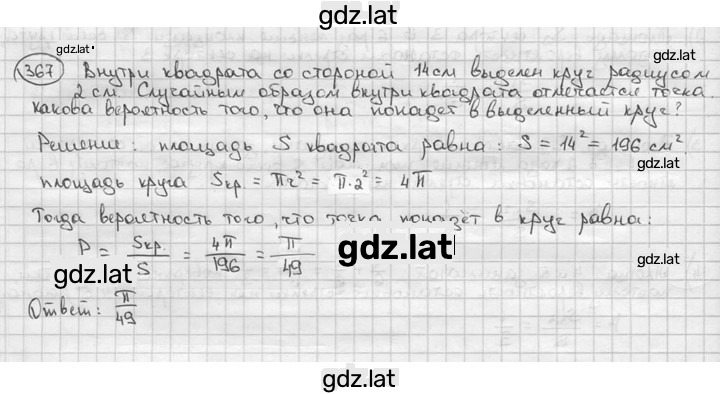 gdz.lat
gdz.lat
367 Внутри квадрата со стороной 14 см выделен круг радиусом
gdz.lat
2 см. Случайным образом внутри квадрата отмечается точка.
какова вероятность того, что она попадет в выделенный круг?
Решение: площадь S квадрата равна: S = 14² = 196 см².
gdz.lat
площадь круга Sкр = πr² = π·2² = 4π
Тогда вероятность того, что точка попадёт в круг равна:
P = Sкр./S = 4π/196 = π/49
gdz.lat
gdz.lat
gdz.lat
Ответ: π/49
gdz.lat